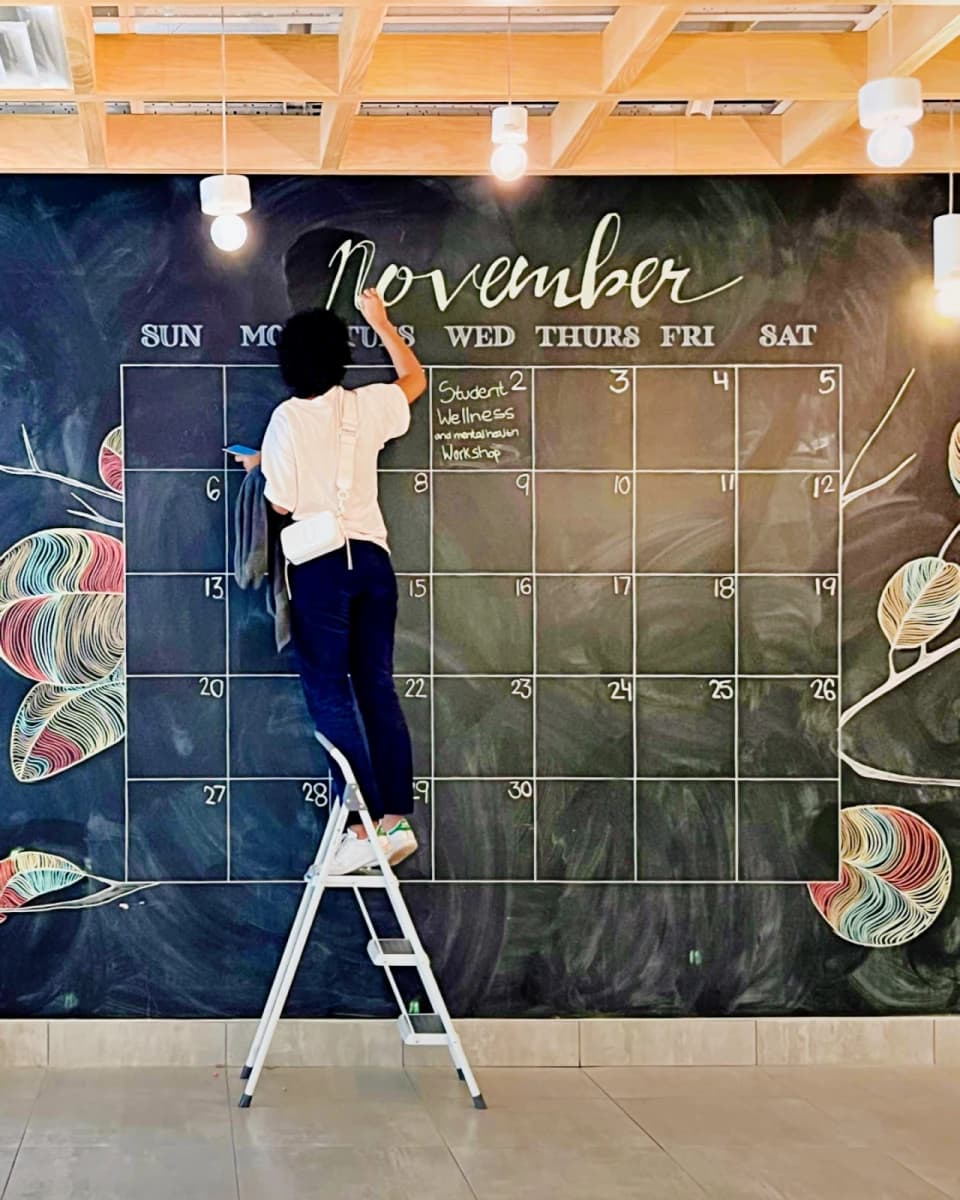 November
SUN MO TUES WED THURS FRI SAT
Student 2 3 4 5
Wellness
and mental health
Workshop
6 8 9 10 11 12
13 15 16 17 18 19
20 22 23 24 25 26
27 28 29 30